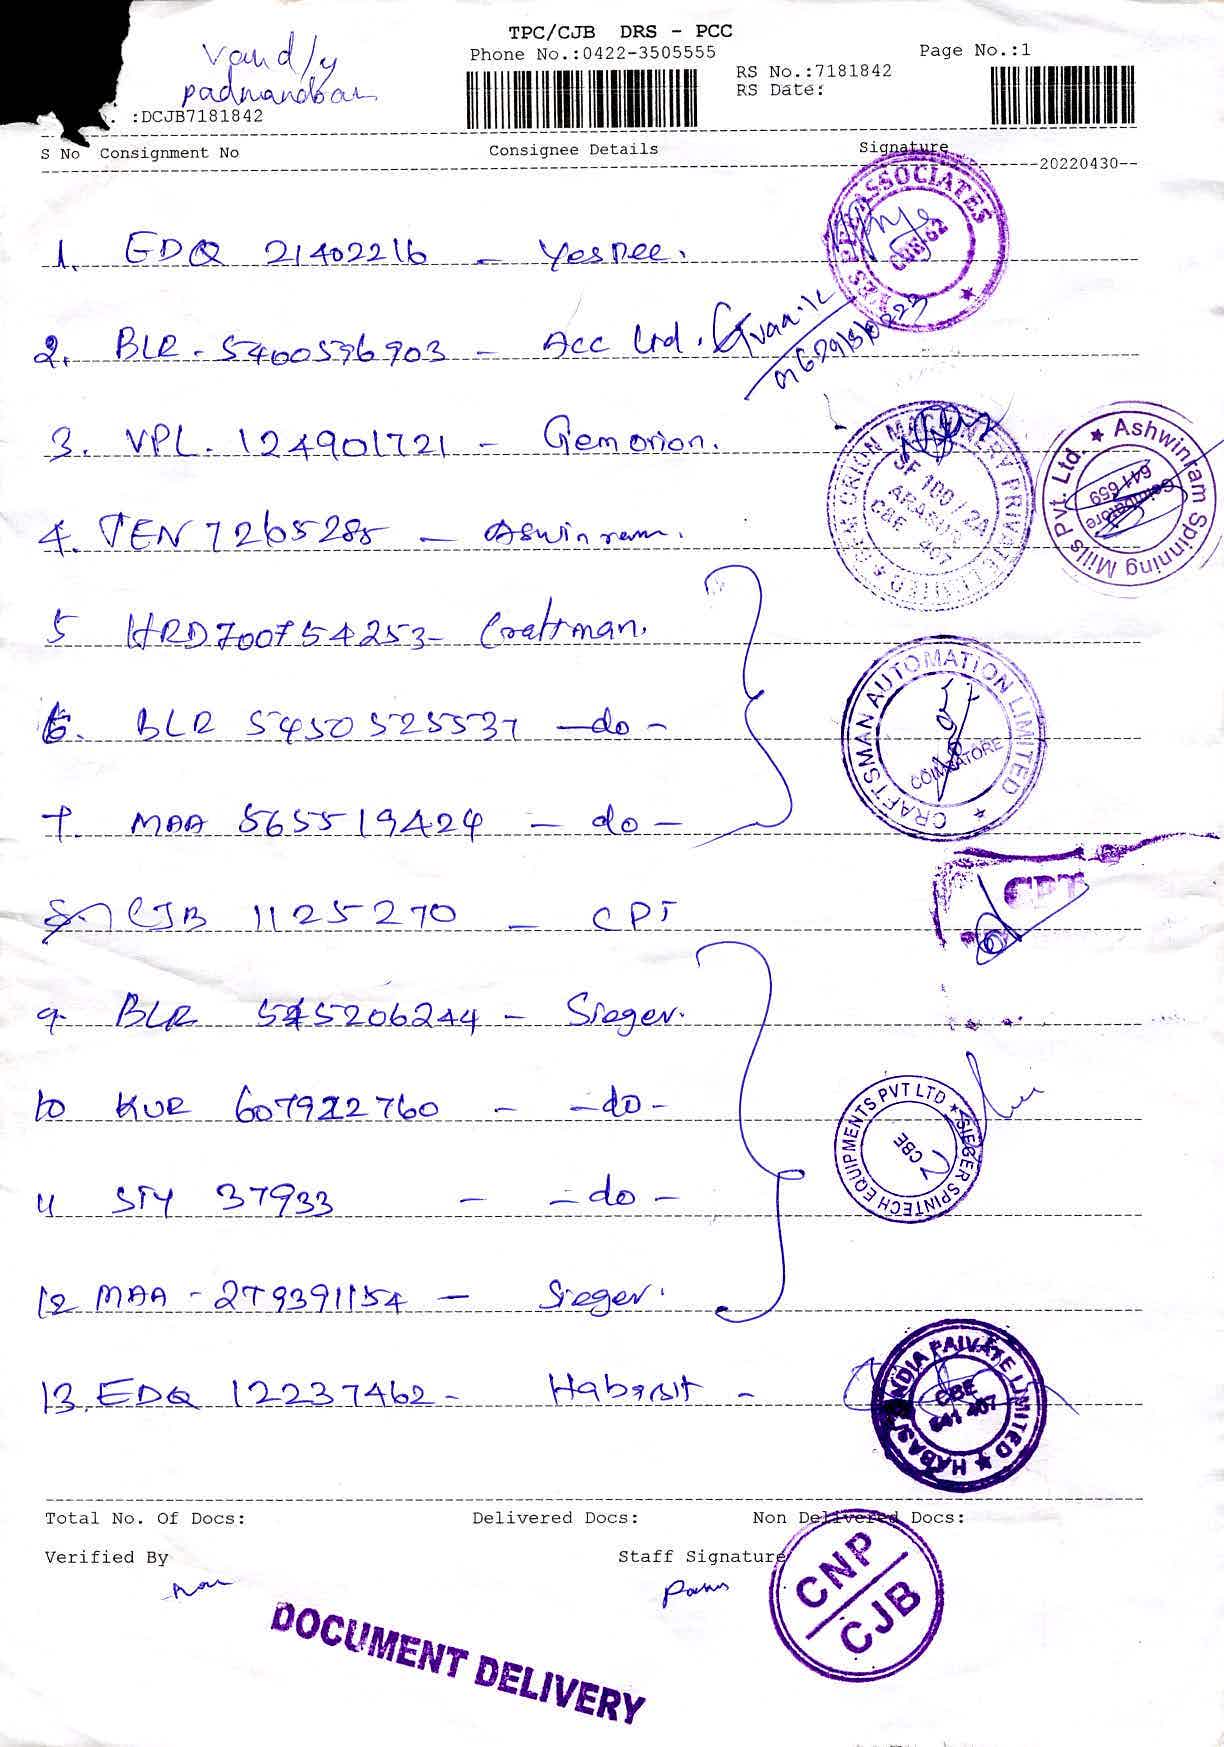 TPC/CJB DRS - PCC
Phone No.:0422-3505555
Page No.:1
RS No.:7181842
RS Date:
:DCJB7181842
S No Consignment No Consignee Details Signature
20220430
1. EDQ 21402216 - Yespee.
YES PEE ASSOCIATES
2. BLR - 5400576903 - Acc Ltd.
3. VPL. 124901721 - Gemorion.
ORION MACHINERY PRIVATE LIMITED
SF 100/2A
ARASUR
CBE
407
4. TEN 7265285 - Aswinram.
Ashwinram Spinning Mills Pvt. Ltd.
Coimbatore
641 659
5 HRD700754253- Craftman.
6. BLR 5450525537 - do -
CRAFTSMAN AUTOMATION LIMITED
COIMBATORE
7. MAA 565519424 - do -
8 CJB 1125270 - CPT
CPT
9. BLR 545206244 - Sieger.
10 KUR 607922760 - - do -
SIEGER SPINTECH EQUIPMENTS PVT LTD
CBE
11 STY 37933 - - do -
12 MAA - 279391154 - Sieger.
13. EDQ 12237462 - Habasit -
HABASIT INDIA PRIVATE LIMITED
CBE
641 407
Total No. Of Docs: Delivered Docs: Non Delivered Docs:
Verified By Staff Signature
CNP
CJB
DOCUMENT DELIVERY